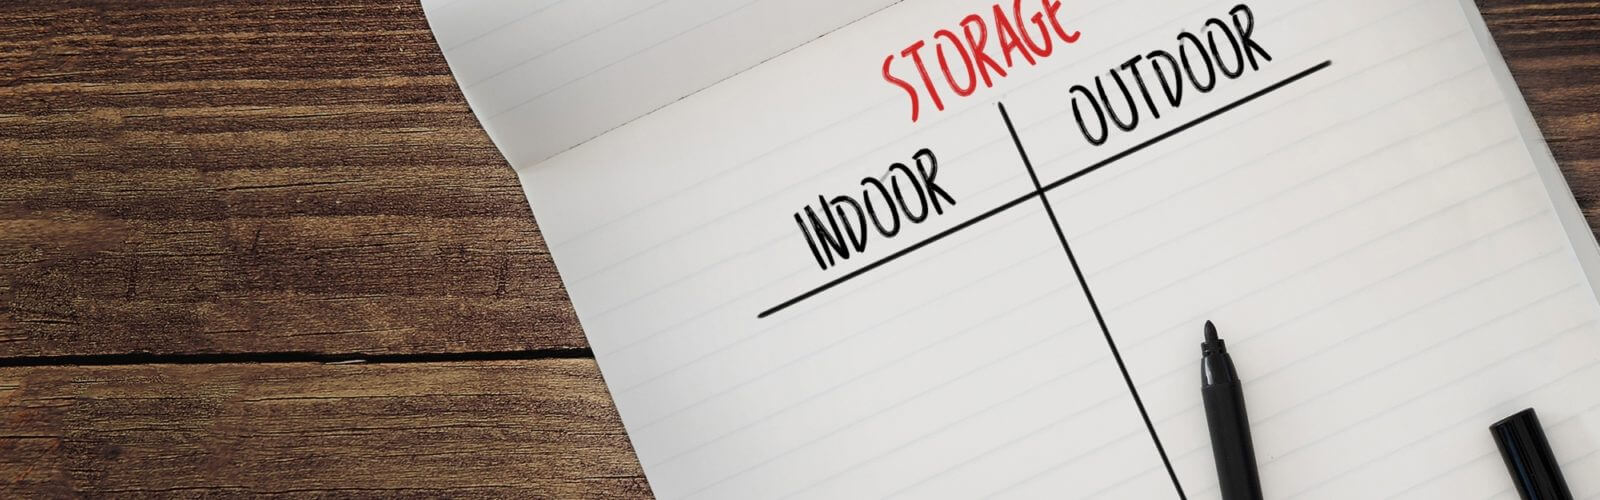 STORAGE
INDOOR OUTDOOR